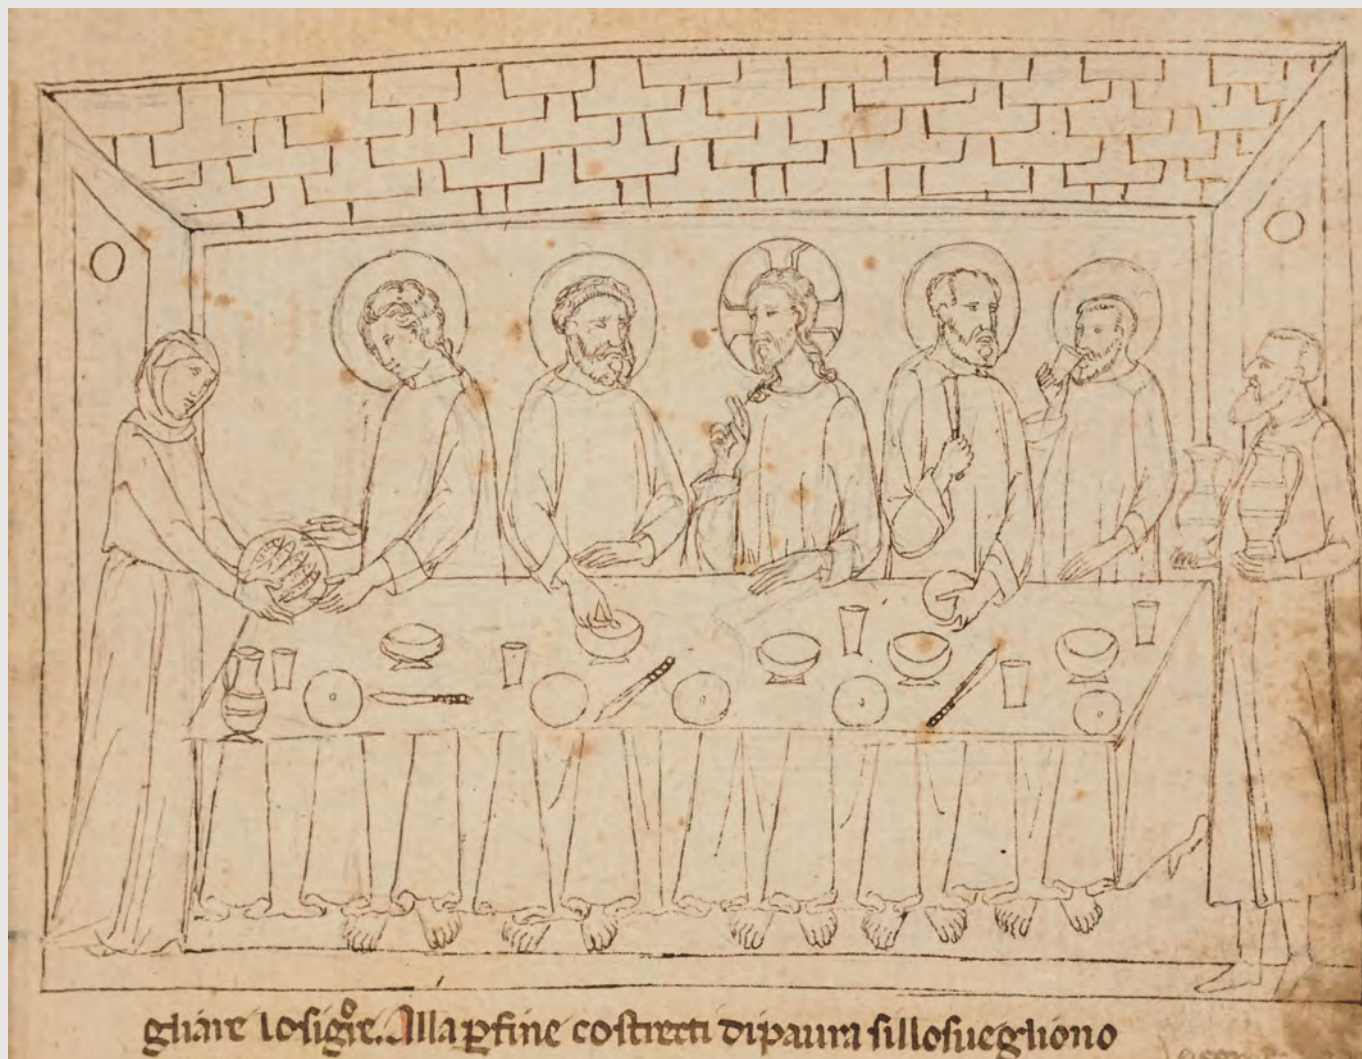 gliare losigre. Alla pfine costretti dipaura sillosuegliono